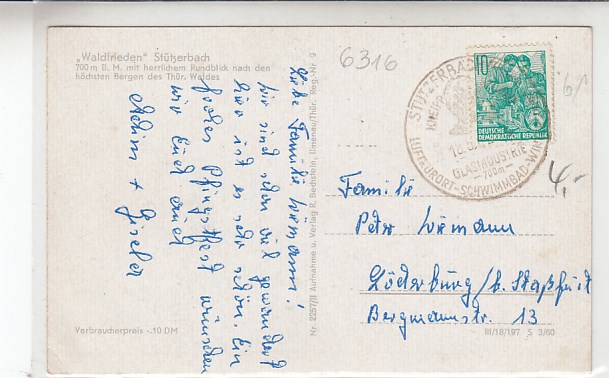 „Waldfrieden" Stützerbach
700 m ü. M. mit herrlichem Rundblick nach den
höchsten Bergen des Thür. Waldes
Liebe Familie Wiemann!
Wir sind schon viel gewandert
hier ist es sehr schön. Ein
frohes Pfingstfest wünschen
wir Euch auch
+ Gisela
Verbraucherpreis -.10 DM
Nr. 2257/II Aufnahme u. Verlag R. Bechstein, Ilmenau/Thür. Reg.-Nr. 9
6316
10
DEUTSCHE
DEMOKRATISCHE REPUBLIK
STÜTZERBACH
KNEIPP
GLASINDUSTRIE
700m
LUFTKURORT-SCHWIMMBAD-WIN
4,-
Familie
Peter Wiemann
Löderburg/b. Staßfurt
Bergmannstr. 13
III/18/197 S 3/60